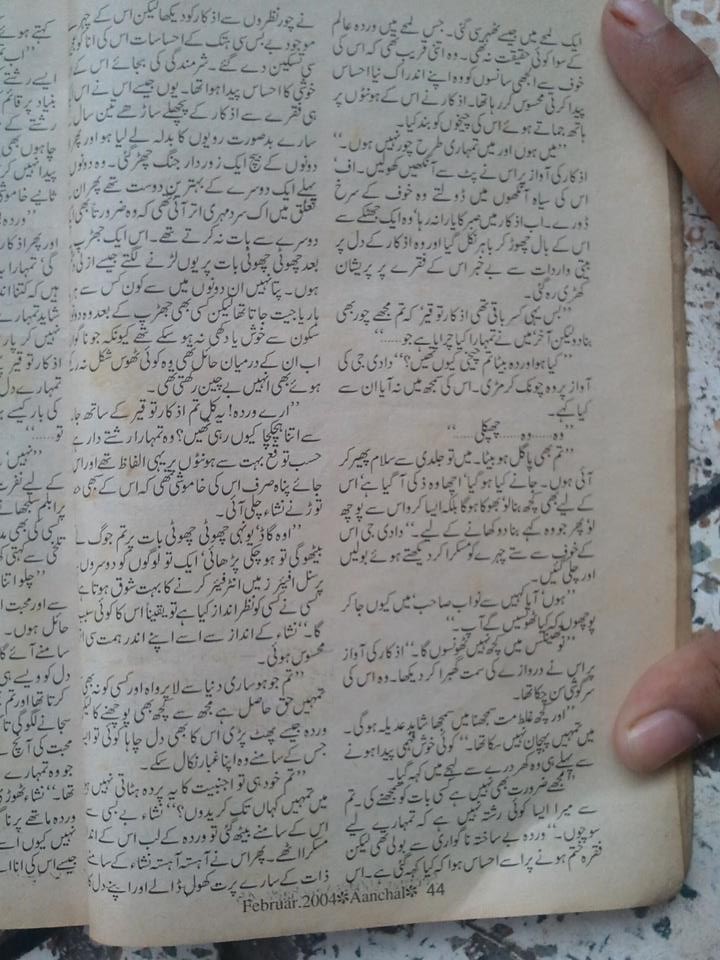 ایک لمحے میں جیسے ٹھہر سی گئی۔ جس لمحے میں وردہ عالم
کے سوا کوئی حقیقت نہ تھی۔ وہ اتنی قریب تھی کہ اس کی
خوف سے الجھی سانسوں کو وہ اپنے اندر اک نیا احساس
پیدا کرتی محسوس کر رہا تھا۔ اذکار نے اس کے ہونٹوں پر
ہاتھ جماتے ہوئے اس کی چیخوں کو بند کیا۔
”میں ہوں اور میں تمہاری طرح چور نہیں ہوں۔“
اذکار کی آواز پر اس نے پٹ سے آنکھیں کھولیں۔ اف‘
اس کی سیاہ آنکھوں میں ڈولتے وہ خوف کے سرخ
ڈورے۔ اب اذکار میں صبر کا یارا نہ رہا‘ وہ ایک جھٹکے سے
اس کے بال چھوڑ کر باہر نکل گیا اور وہ اذکار کے دل پر
بیتی واردات سے بے خبر اس کے فقرے پر پریشان
کھڑی رہ گئی۔
”بس یہی کسر باقی تھی اذکار توقیر‘ کہ تم مجھے چور بھی
بنا دو لیکن آخر میں نے تمہارا کیا چرایا ہے جو......“
”کیا ہوا وردہ بیٹا تم چیخی کیوں تھیں؟“ دادی جی کی
آواز پر وہ چونک کر مڑی۔ اس کی سمجھ میں نہ آیا ان سے
کیا کہے۔
”وہ......وہ......چھپکلی......“
”تم بھی پاگل ہو بیٹا۔ میں تو جلدی سے سلام پھیر کر
آئی ہوں۔ جانے کیا ہو گیا‘ اچھا وہ ذکی آ گیا ہے‘ اس
کے لیے بھی کچھ بنا لو بھوکا ہوگا بلکہ ایسا کرو اس سے پوچھ
لو پھر جو وہ کہے بنا دو کھانے کے لیے۔“ دادی جی اس
کے خوف سے ستے چہرے کو مسکرا کر دیکھتے ہوئے بولیں
اور چلی گئیں۔
”ہوں‘ آیا کہیں سے نواب صاحب‘ میں کیوں جا کر
پوچھوں کہ کیا ٹھونسیں گے آپ۔“
”نو تھینکس میں کچھ نہیں ٹھونسوں گا۔“ اذکار کی آواز
پر اس نے دروازے کی سمت گھبرا کر دیکھا۔ وہ اس کی
سرگوشی سن چکا تھا۔
”اور کچھ غلط مت سمجھنا میں سمجھا شاید عدیلہ ہوگی۔
میں تمہیں پہچان نہیں سکا تھا۔“ کوئی خوش فہمی پیدا ہونے
سے پہلے ہی وہ کھردرے سے لہجے میں کہہ گیا۔
”مجھے ضرورت بھی نہیں ہے کسی بات کو سمجھنے کی۔ تم
سے میرا ایسا کوئی رشتہ نہیں ہے کہ تمہارے لیے
سوچوں۔“ وردہ بے ساختہ ناگواری سے بولی تھی لیکن
فقرہ ختم ہونے پر اسے احساس ہوا کہ کیا کہہ گئی ہے۔ اس
نے چور نظروں سے اذکار کو دیکھا لیکن اس کے چہرے
موجود بے بس سی ہتک کے احساسات اس کی انا کو
سی تسکین دے گئے۔ شرمندگی کی بجائے اس کے
خوشی کا احساس پیدا ہوا تھا۔ یوں جیسے اس نے اس
ہی فقرے سے اذکار کے پچھلے ساڑھے تین سال
سارے بدصورت رویوں کا بدلہ لے لیا ہو اور پھر
دونوں کے بیچ ایک زوردار جنگ چھڑ گئی۔ وہ دونوں
پہلے ایک دوسرے کے بہترین دوست تھے پھر ان
تعلق میں اک سرد مہری اتر آئی تھی کہ وہ ضرورتاً بھی
دوسرے سے بات نہ کرتے تھے۔ اس ایک جھڑپ
بعد چھوٹی چھوٹی بات پر یوں لڑنے لگتے جیسے ازلی
ہوں۔ پتا نہیں ان دونوں میں سے کون کس سے
ہار یا جیت جاتا تھا لیکن کسی بھی جھڑپ کے بعد وہ دو
سکون سے خوش یا دکھی نہ ہو سکے تھے کیونکہ جو نا
اب ان کے درمیان حائل تھی وہ کوئی ٹھوس شکل نہ
ہوئے بھی انہیں بے چین رکھتی تھی۔
”ارے وردہ! یہ کل تم اذکار توقیر کے ساتھ جا
سے اتنا ہچکچا کیوں رہی تھیں؟ وہ تمہارا رشتے دار ہے
حسب توقع بہت سے ہونٹوں پر یہی الفاظ تھے اور اس
جائے پناہ صرف اس کی خاموشی تھی کہ اس کے بھی
توڑنے نشاء چلی آئی۔
”اوہ گاڈ‘ یونہی چھوٹی چھوٹی بات پر تم جوگ لے
بیٹھو گی تو ہو چکی پڑھائی‘ ایک تو لوگوں کو دوسروں
پرسنل افیئرز میں انٹرفیئر کرنے کا بہت شوق ہوتا ہے
کسی نے کسی کو نظر انداز کیا ہے تو یقیناً اس کا کوئی سبب
گا۔“ نشاء کے انداز سے اسے اپنے اندر ہمت سی
محسوس ہوئی۔
”تم جو ہو ساری دنیا سے لاپرواہ اور کسی کو نہ
تمہیں حق حاصل ہے مجھ سے کچھ بھی پوچھنے کا
وردہ جیسے پھٹ پڑی اس کا بھی دل چاہا کوئی تو
جس کے سامنے وہ اپنا غبار نکال سکے۔
”تم خود ہی تو اجنبیت کا یہ پردہ ہٹاتی نہیں
میں تمہیں کہاں تک کریدوں؟“ نشاء بے بسی سے
اس کے سامنے بیٹھ گئی تو وردہ کے لب اس کے انداز
مسکرا اٹھے۔ پھر اس نے آہستہ آہستہ نشاء کے سامنے
ذات کے سارے پرت کھول ڈالے اور اپنے دل کا
Februar.2004❋Aanchal❋ 44